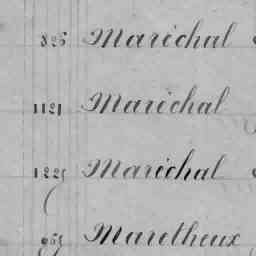 826 Maréchal
1121 Maréchal
1225 Maréchal
965 Maretheux